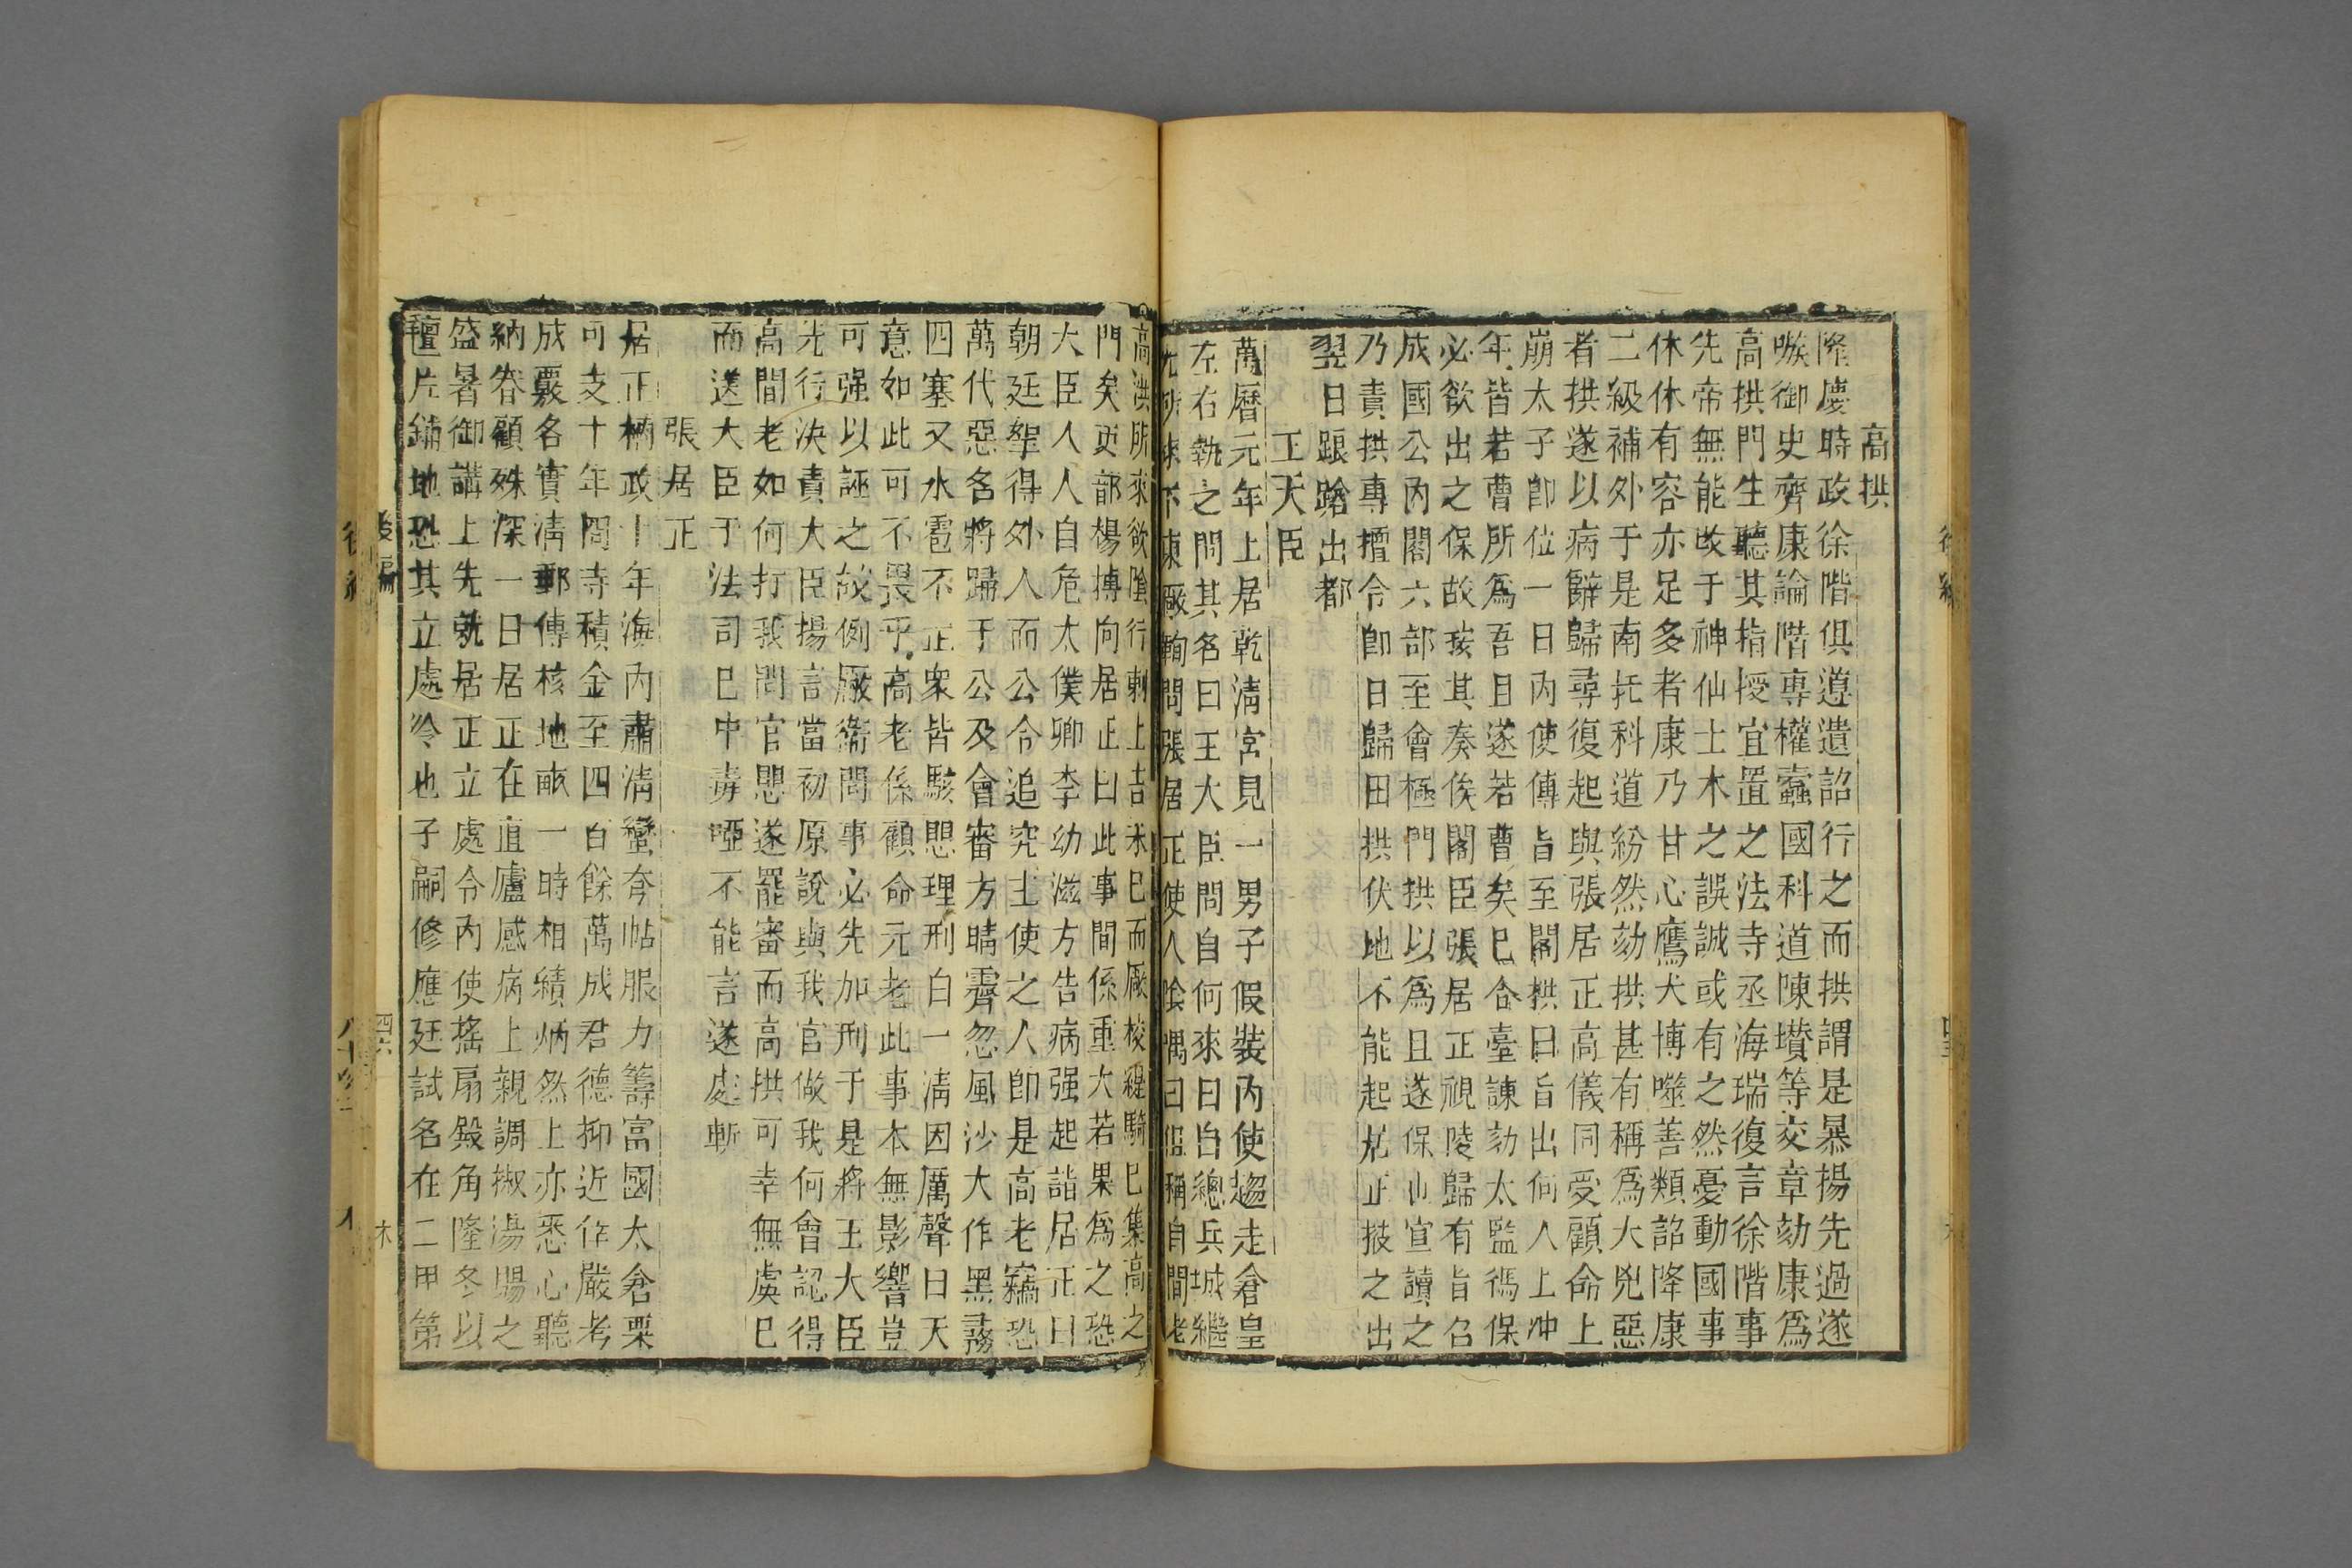 高拱
隆慶時政徐階俱遵遺詔行之而拱謂是暴揚先過遂
嗾御史齊康論階專權蠹國科道陳瓚等交章劾康為
高拱門生聽其指授宜置之法寺丞海瑞復言徐階事
先帝無能改于神仙士木之誤誠或有之然憂動國事
休休有容亦足多者康乃甘心鷹犬博噬善類詔降康
二級補外于是南北科道紛然劾拱甚有稱為大兇惡
者拱遂以病辭歸尋復起與張居正高儀同受顧命上
崩太子即位一日內使傳旨至閣拱曰旨出何人上冲
年皆若曹所為吾且遂若曹矣已令臺諫劾太監馮保
必欲出之保故挨其奏俟閣臣張居正視陵歸有旨召
成國公內閣六部至會極門拱以為且遂保也宣讀之
乃責拱專擅令即日歸田拱伏地不能起居正掖之出
翌日踉蹌出都
王大臣
萬曆元年上居乾清宮見一男子假裝內使趨走倉皇
左右執之問其名曰王大臣問自何來曰自總兵戚繼
光所來下東廠鞫問張居正使人陰嗾曰但稱自閣老
高洪所來欲陰行刺上吉未已而廠校緹騎已集高之
門矣吏部楊博向居正曰此事間係重大若果為之恐
大臣人人自危太僕卿李幼滋方告病强起詣居正曰
朝廷拏得外人而公令追究主使之人即是高老竊恐
萬代惡名將歸于公及會審方晴霽忽風沙大作黑霧
四塞又水雹不止衆皆駭思理刑白一清因厲聲曰天
意如此可不畏乎高老係顧命元老此事本無影響豈
可强以誣之故例厰衛問事必先加刑于是將王大臣
先行決責大臣揚言當初原說與我官做我何會認得
高閣老如何打我問官思遂罷審而高拱可幸無虞已
而送大臣于法司已中毒啞不能言遂處斬
張居正
居正柄政十年海內肅清蠻夸帖服力籌富國太倉粟
可支十年冏寺積金至四百餘萬成君德抑近倖嚴考
成覈名實清郵傳核地畝一時相績炳然上亦悉心聽
納眷顧殊深一日居正在直廬感病上親調椒湯賜之
盛暑御講上先就居正立處令內使搖扇殿角隆冬以
氊片鋪地恐其立處冷也子嗣修應廷試名在二甲第
後編
四六